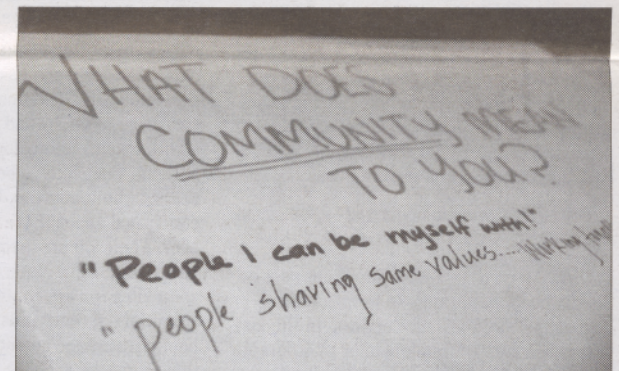 WHAT DOES
COMMUNITY MEAN
TO YOU?
"People I can be myself with!"
"people sharing same values.... Working